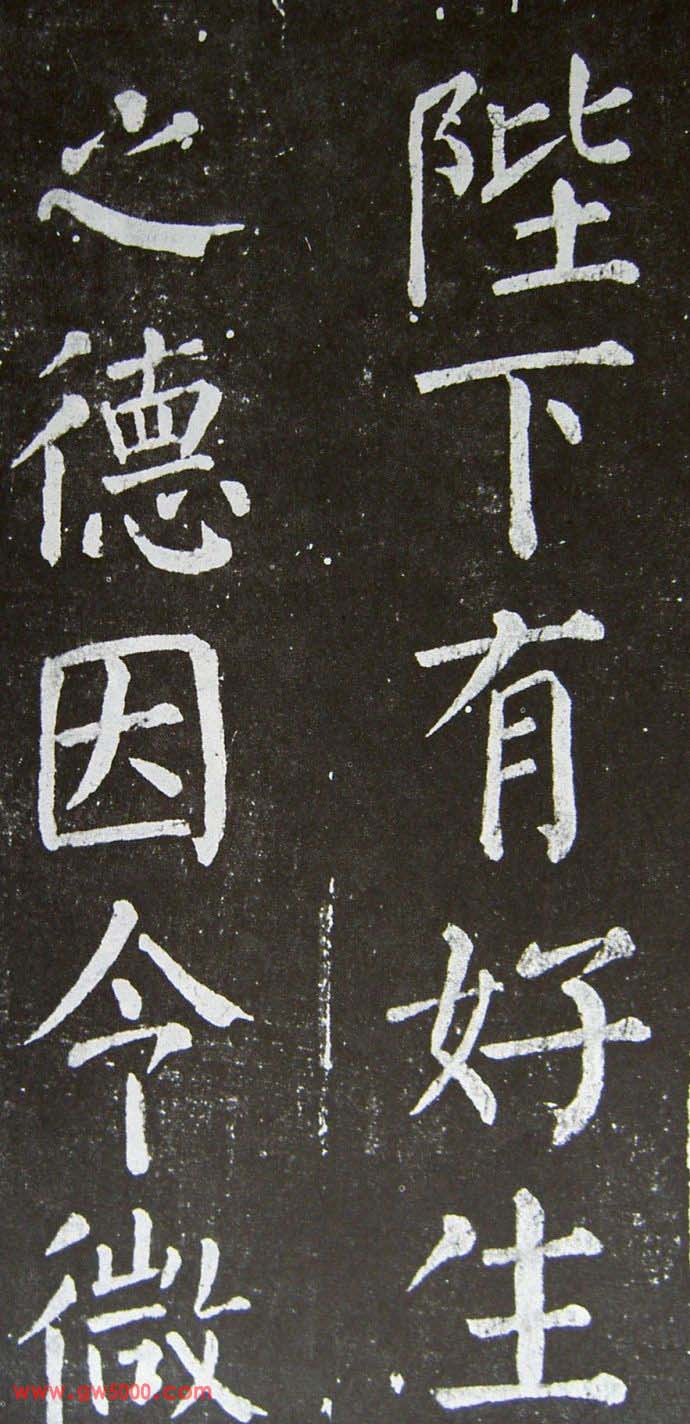 陛下有好生
之德因令微
www.gw5000.com